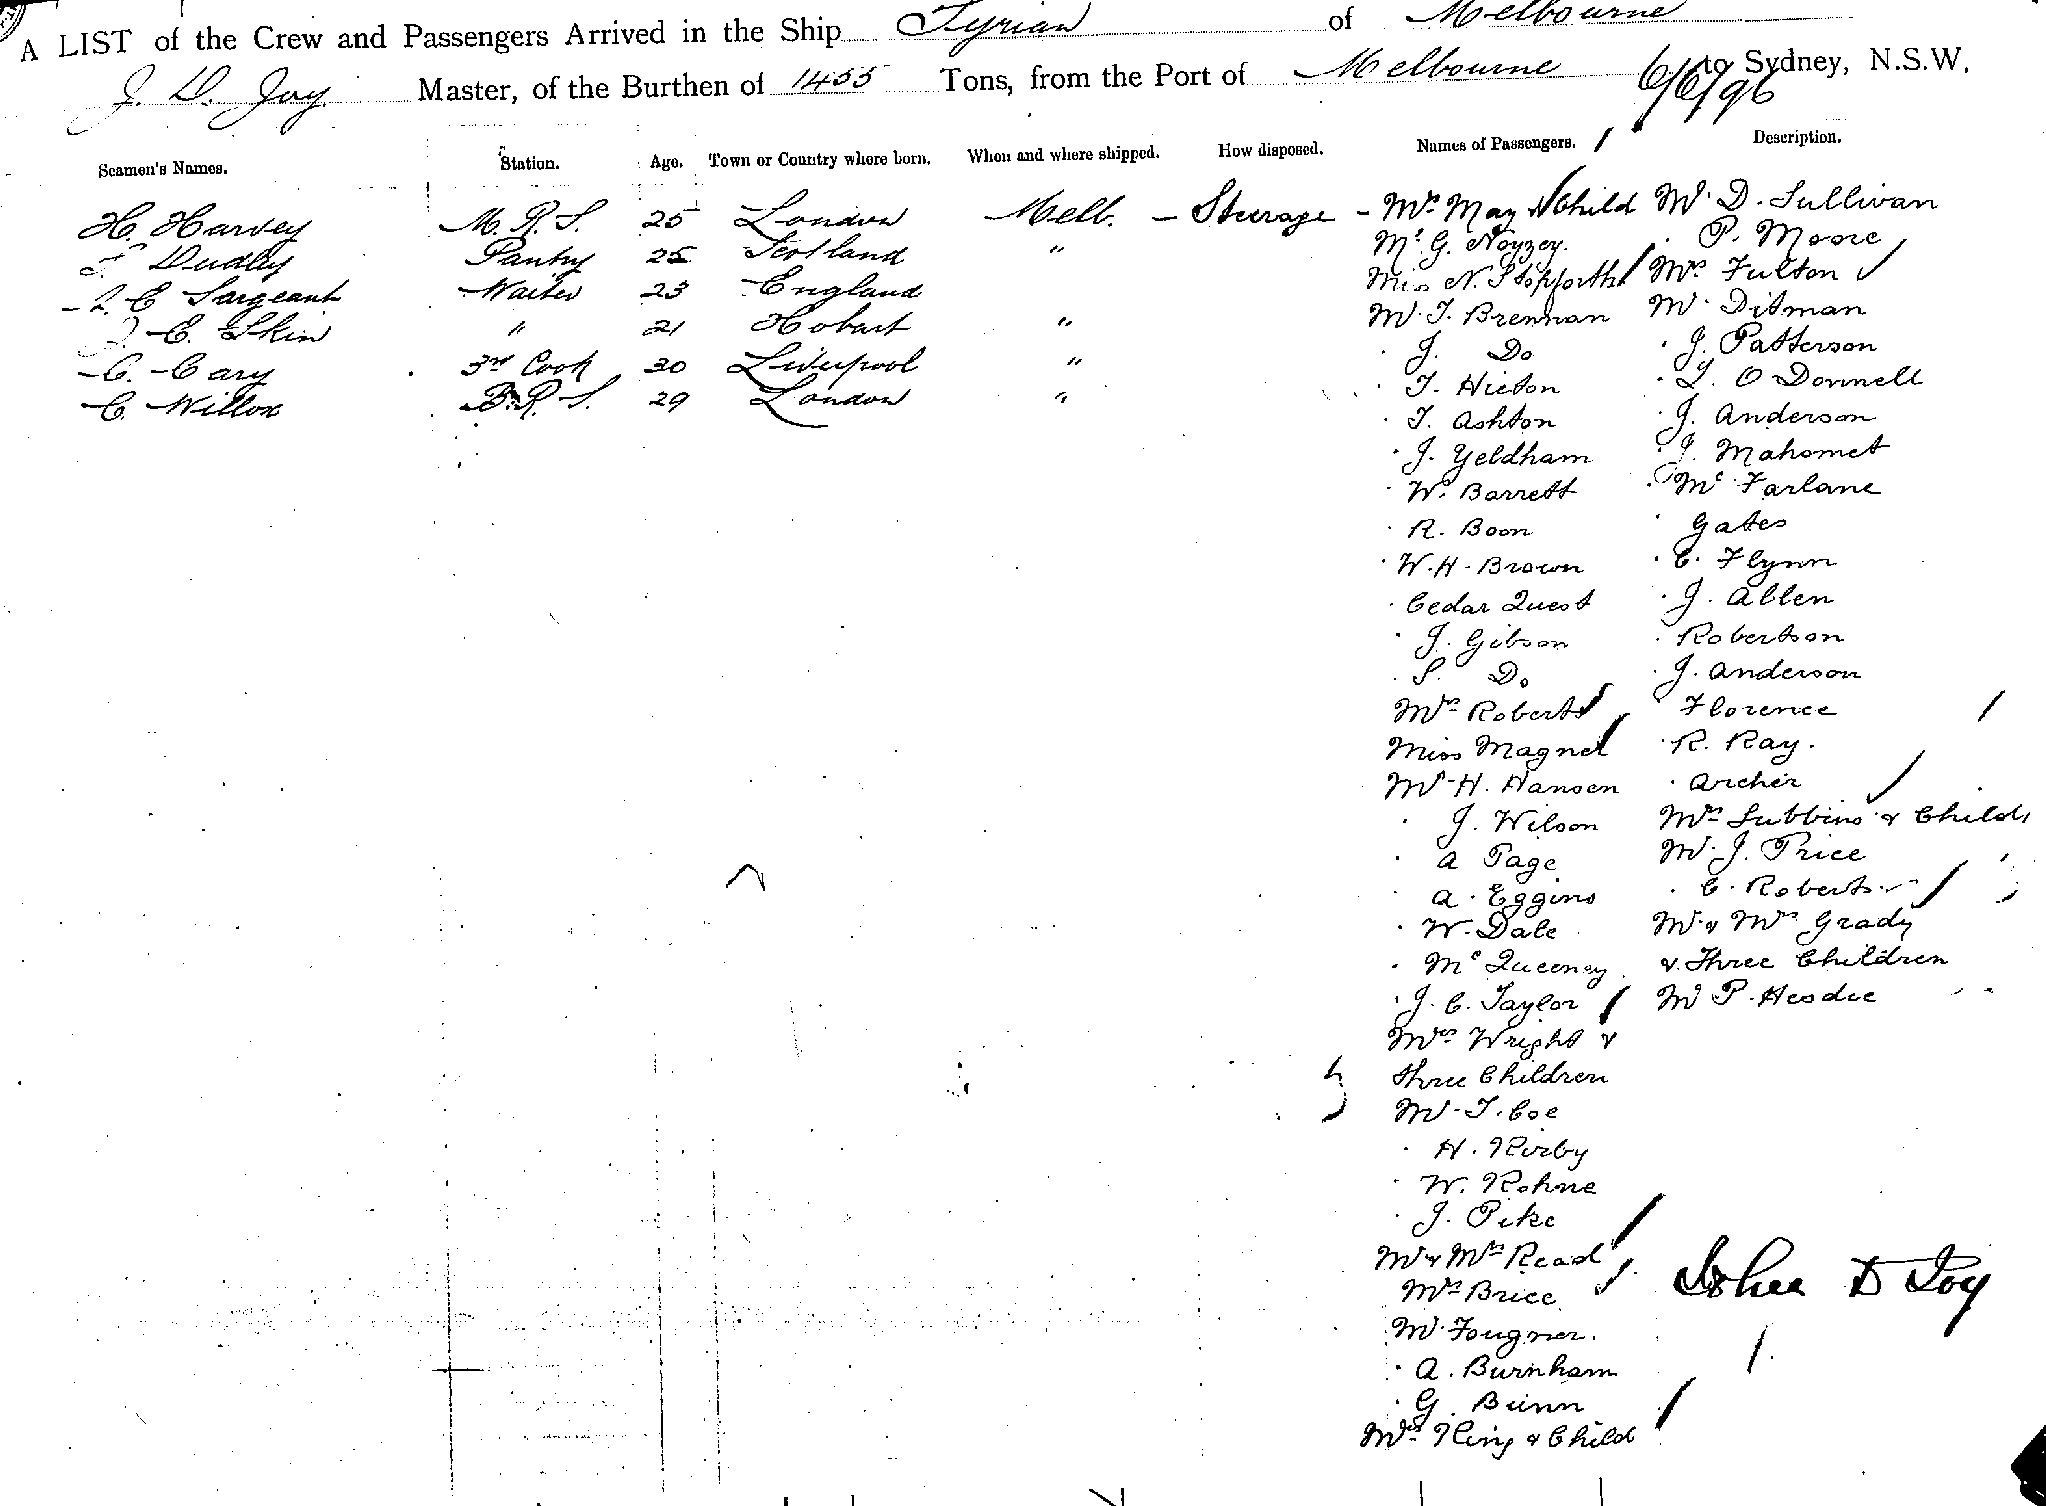 A LIST of the Crew and Passengers Arrived in the Ship Tyrian of Melbourne
J. D. Joy Master, of the Burthen of 1455 Tons, from the Port of Melbourne to Sydney, N.S.W.
6/6/96
Seamen's Names. Station. Age. Town or Country where born. When and where shipped. How disposed. Names of Passengers. Description.
H. Harvey M.R.S. 25 London Melb. — Steerage
Dudley Pantry 25 Scotland "
C Sargeant Waiter 23 England
C. Skin " 21 Hobart "
C. Cary 3rd Cook 30 Liverpool "
C. Willox B.R.S. 29 London "
Mrs May & Child
Mr G. Noyzey.
Miss N. Stopforth
Mr T. Brennan
" J. Do
" T. Hieton
" T. Ashton
" J. Yeldham
" W. Barrett
" R. Boon
" W. H. Brown
" Cedar Quest
" J. Gibson
" S. Do
Mrs Roberts
Miss Magnet
Mr H. Hansen
" J. Wilson
" A Page
" A. Eggins
" W. Dale
" Mc Queeney
" J. C. Taylor
Mrs Wright &
three Children
Mr T. Coe
" H. Kirby
" W. Rohne
" J. Pike
Mr & Mrs Read
Mrs Brice
Mr Fougner.
" A. Burnham
" G. Bunn
Mrs King & Child
Mr D. Sullivan
" P. Moore
Mrs Fulton
Mr Ditman
" J. Patterson
" L. O Donnell
" J. Anderson
" J. Mahomet
" Mc Farlane
" Gates
" C. Flynn
" J. Allen
" Robertson
" J. Anderson
" Florence
" R. Ray.
" Archer
Mrs Subbins & Child
Mr J. Price
" C. Roberts
Mr & Mrs Grady
& Three Children
Mr P. Hesdie
John D Joy